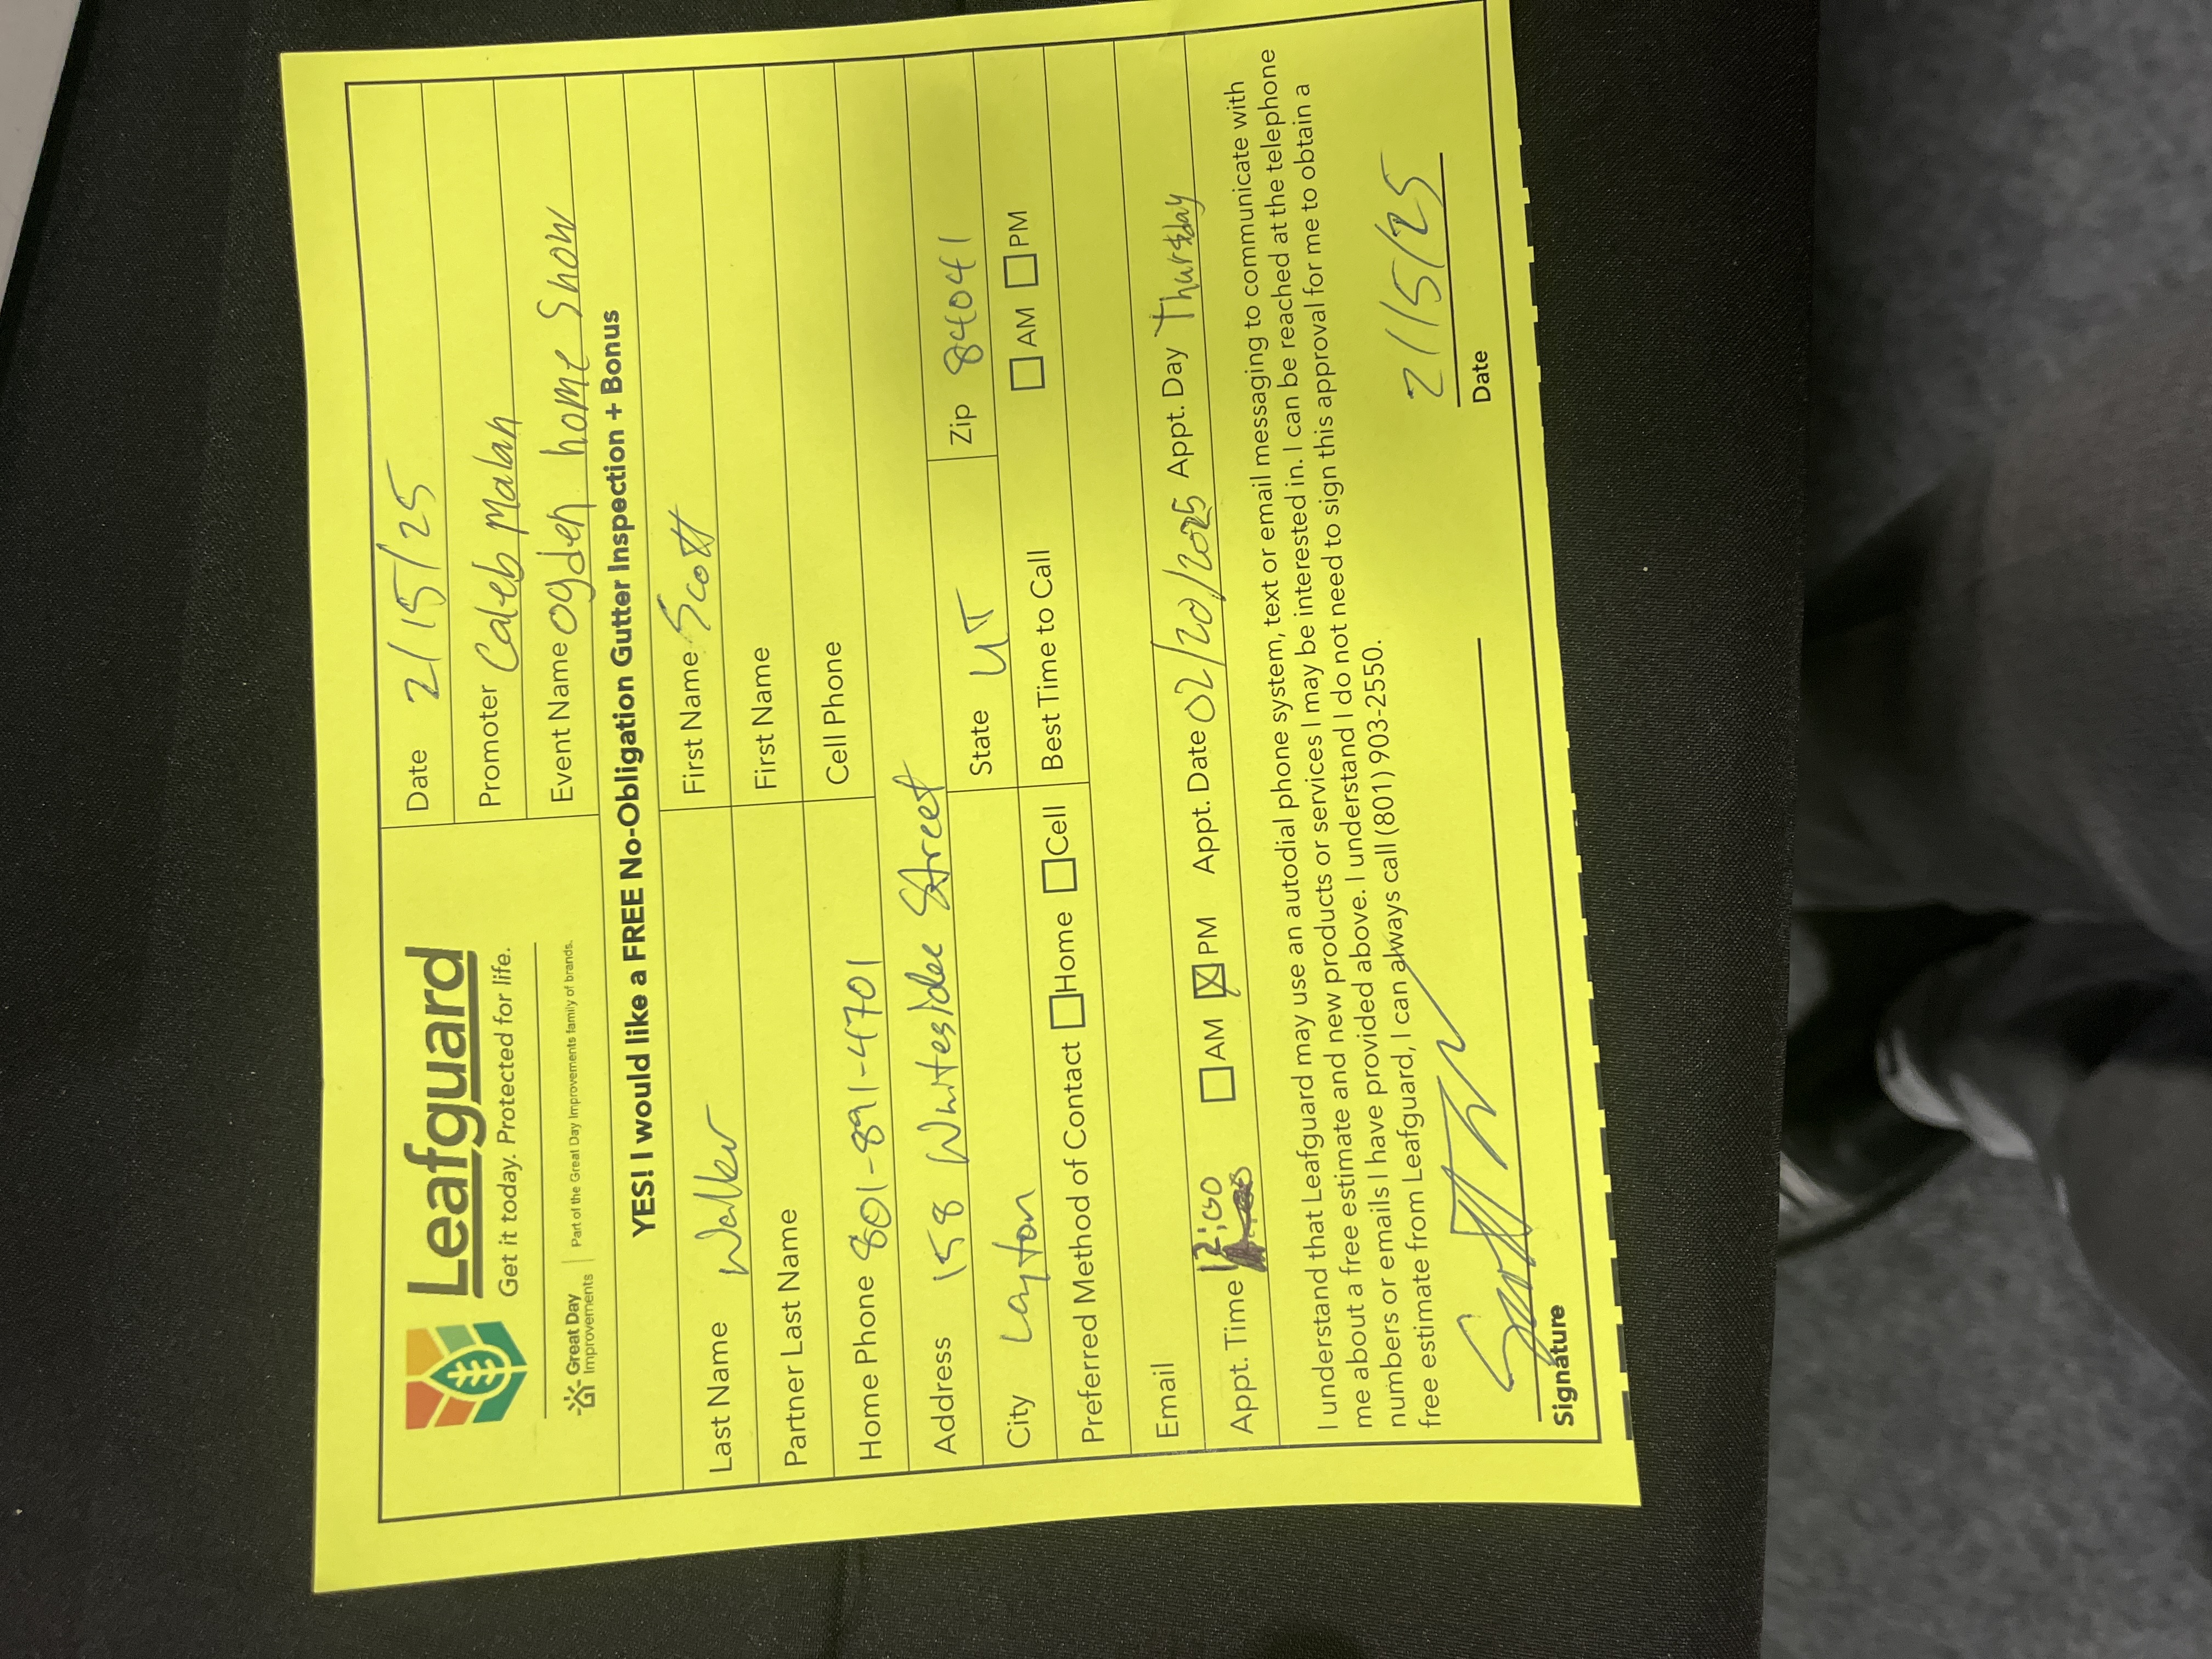 Leafguard
Get it today. Protected for life.
Great Day Improvements
Part of the Great Day Improvements family of brands.
Date 2/15/25
Promoter Caleb Malan
Event Name Ogden home Show
YES! I would like a FREE No-Obligation Gutter Inspection + Bonus
Last Name Walker First Name Scott
Partner Last Name First Name
Home Phone 801-891-4701 Cell Phone
Address 158 Whitesides Street
City Layton State UT Zip 84041
Preferred Method of Contact Home Cell Best Time to Call AM PM
Email
Appt. Time 12:00 AM X PM Appt. Date 02/20/2025 Appt. Day Thursday
I understand that Leafguard may use an autodial phone system, text or email messaging to communicate with
me about a free estimate and new products or services I may be interested in. I can be reached at the telephone
numbers or emails I have provided above. I understand I do not need to sign this approval for me to obtain a
free estimate from Leafguard, I can always call (801) 903-2550.
Scott
2/15/25
Signature
Date